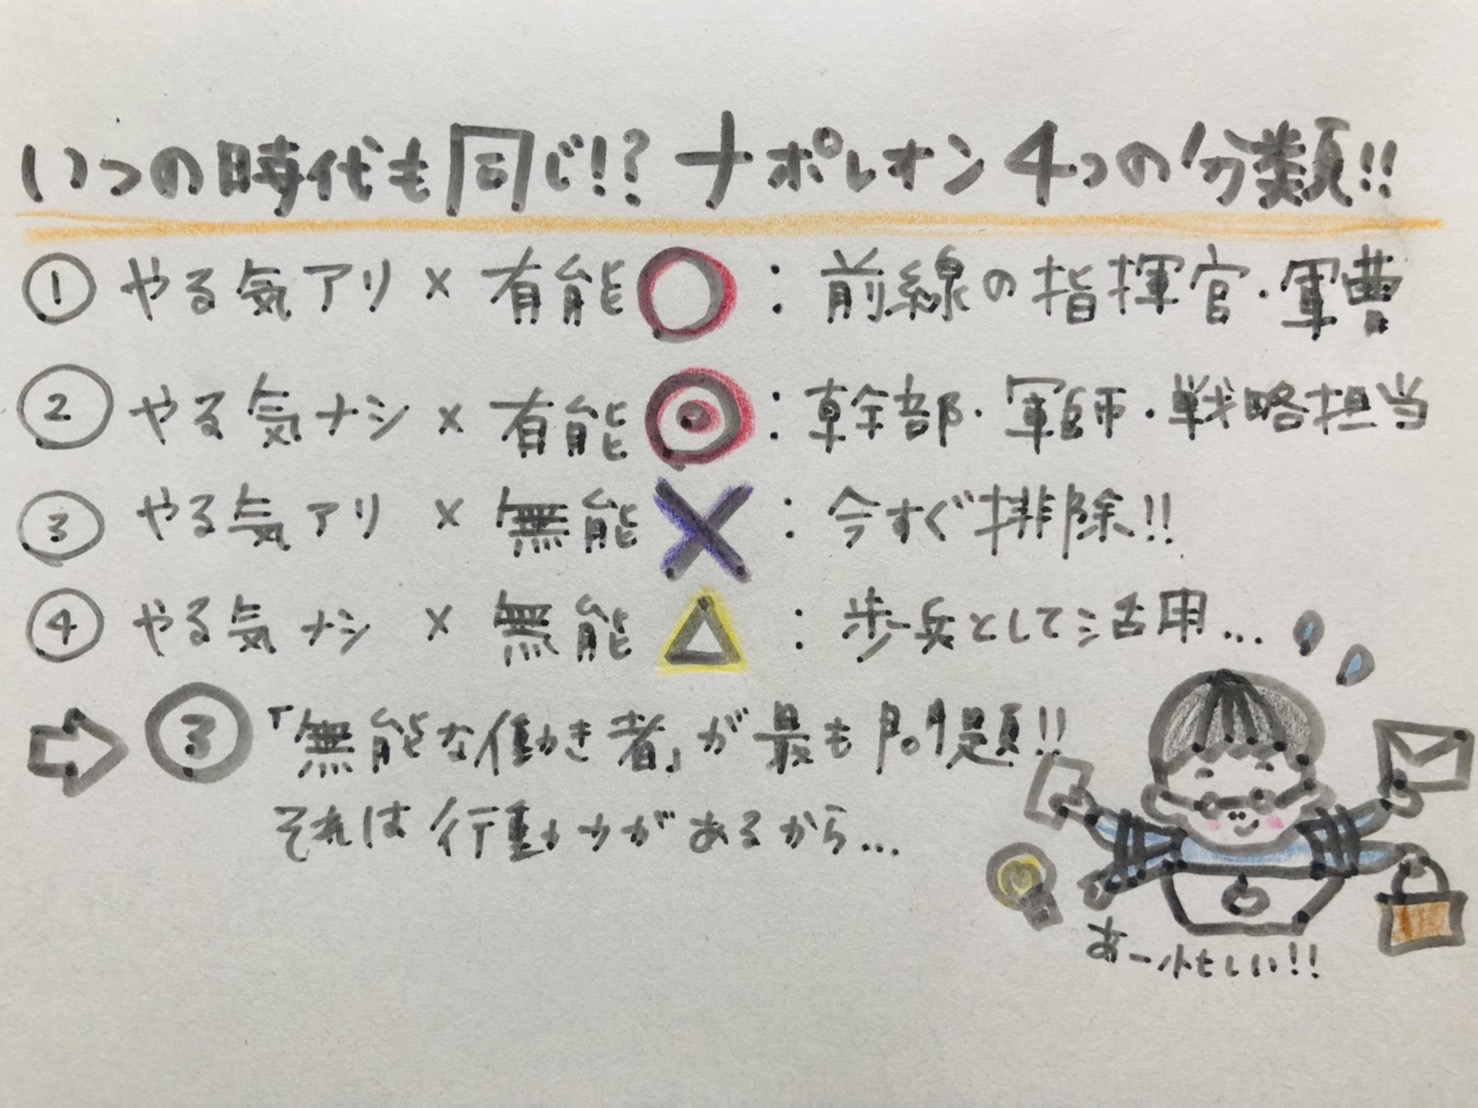 いつの時代も同じ!? ナポレオン4つの分類!!
① やる気アリ × 有能 ○ : 前線の指揮官・軍曹
② やる気ナシ × 有能 ◎ : 幹部・軍師・戦略担当
③ やる気アリ × 無能 × : 今すぐ排除!!
④ やる気ナシ × 無能 △ : 歩兵として活用...
⇨ ③ 「無能な働き者」が最も問題!!
それは行動力があるから...
あー忙しい!!